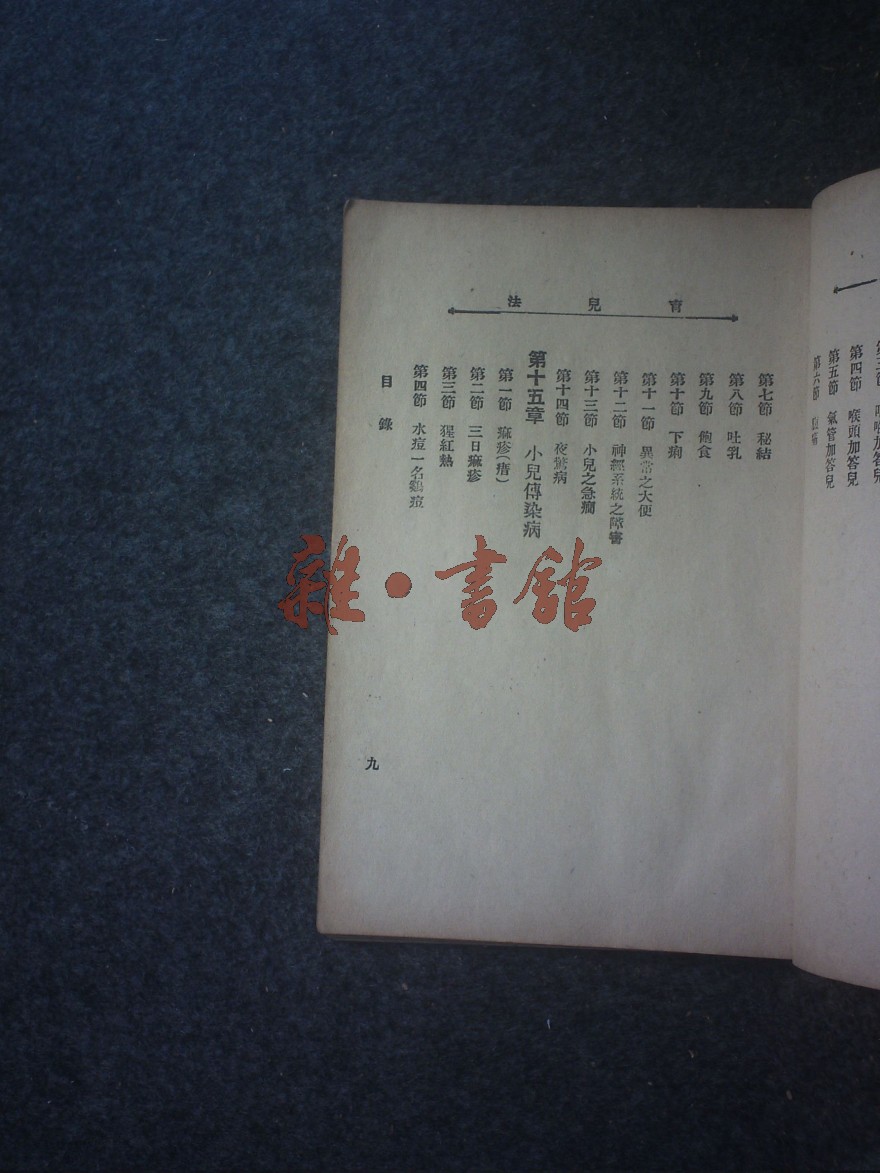 第四節　喉頭加答兒
第五節　氣管加答兒
第六節
育兒法
第七節　秘結
第八節　吐乳
第九節　飽食
第十節　下痢
第十一節　異常之大便
第十二節　神經系統之障害
第十三節　小兒之急癇
第十四節　夜驚病
第十五章　小兒傳染病
第一節　痲疹(瘄)
第二節　三日痲疹
第三節　猩紅熱
第四節　水痘一名鷄痘
目錄
九
雜·書館